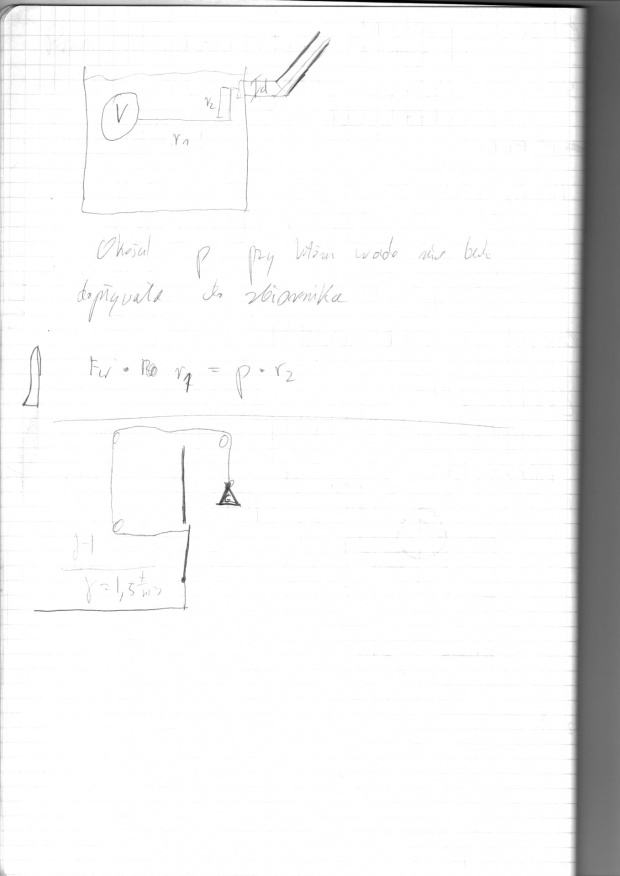 d
r₂
V
r₁
Określ p przy którym woda nie będzie
dopływała do zbiornika
Fw · r₁ = p · r₂
γ=1
γ = 1,5 t/m³